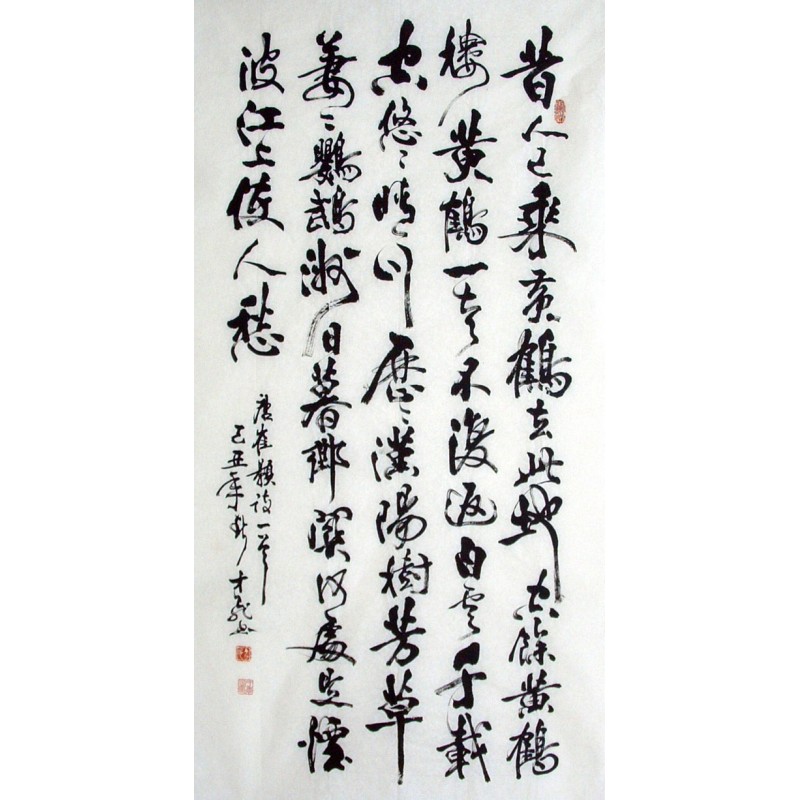 昔人已乘黄鶴去此地空餘黄鶴
樓黄鶴一去不復返白雲千載
空悠悠晴川歷歷漢陽樹芳草
萋萋鸚鵡洲日暮鄉關何處是煙
波江上使人愁
唐崔顥詩一首
己丑年